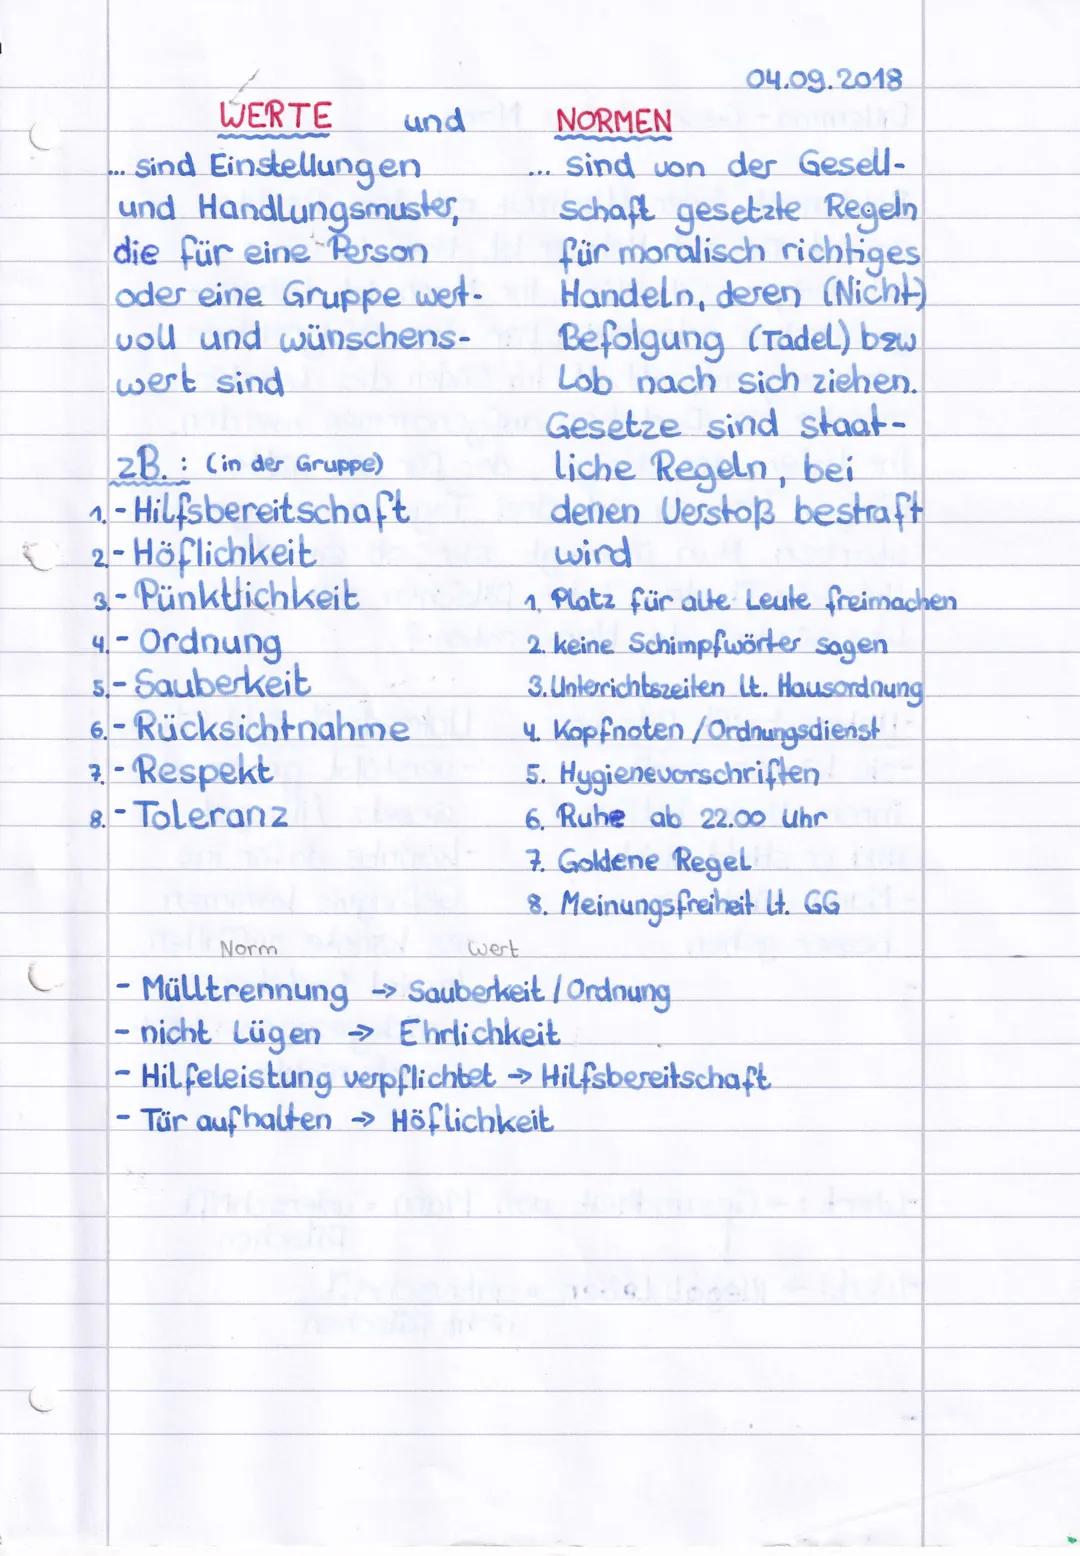 04.09.2018
WERTE und NORMEN
... sind Einstellungen
und Handlungsmuster,
die für eine Person
oder eine Gruppe wert-
voll und wünschens-
wert sind
zB.: (in der Gruppe)
1. - Hilfsbereitschaft
2 - Höflichkeit
3. - Pünktlichkeit
4. - Ordnung
5. - Sauberkeit
6. - Rücksichtnahme
7. - Respekt
8. - Toleranz
... sind von der Gesell-
schaft gesetzte Regeln
für moralisch richtiges
Handeln, deren (Nicht)
Befolgung (Tadel) bzw
Lob nach sich ziehen.
Gesetze sind staat-
liche Regeln, bei
denen Verstoß bestraft
wird
1. Platz für alte Leute freimachen
2. keine Schimpfwörter sagen
3. Unterrichtszeiten lt. Hausordnung
4. Kopfnoten / Ordnungsdienst
5. Hygienevorschriften
6. Ruhe ab 22.00 Uhr
7. Goldene Regel
8. Meinungsfreiheit lt. GG
Norm Wert
- Mülltrennung → Sauberkeit / Ordnung
- nicht Lügen → Ehrlichkeit
- Hilfeleistung verpflichtet → Hilfsbereitschaft
- Tür aufhalten → Höflichkeit